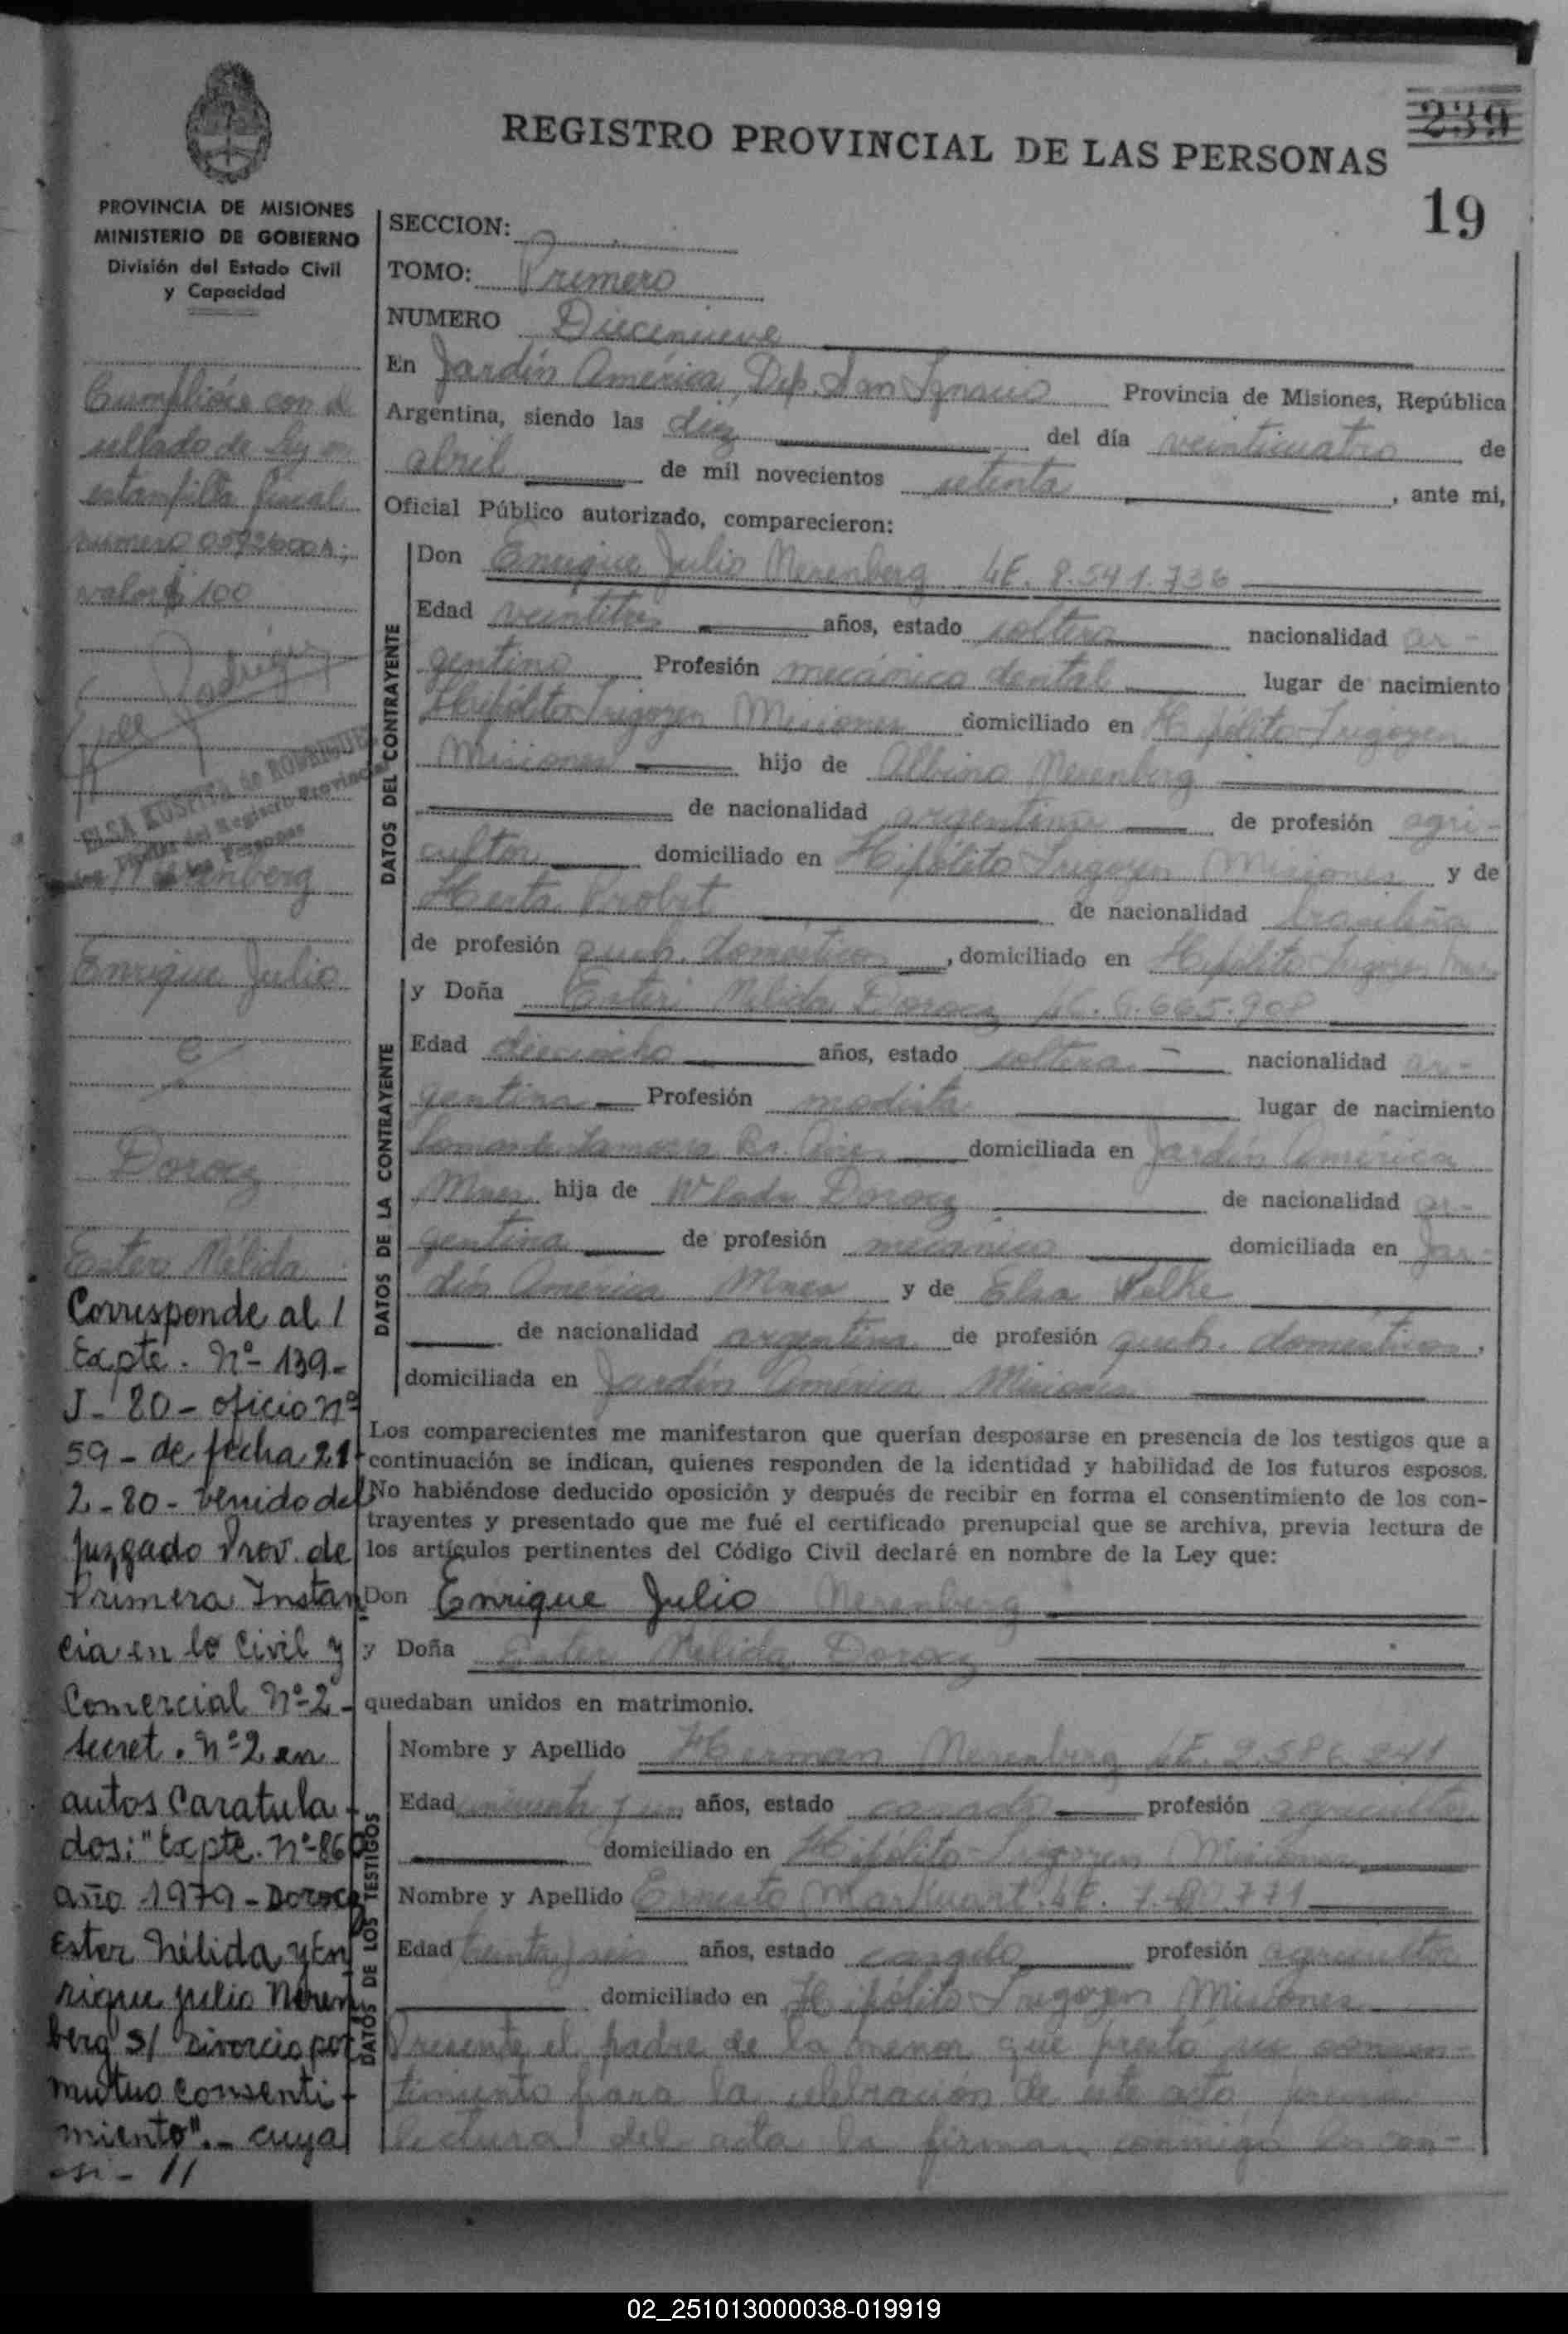 239
REGISTRO PROVINCIAL DE LAS PERSONAS
19
PROVINCIA DE MISIONES
MINISTERIO DE GOBIERNO
División del Estado Civil
y Capacidad
SECCION:
TOMO: Primero
NUMERO Diecinueve
En Jardín América, Dep. San Ignacio Provincia de Misiones, República
Argentina, siendo las diez del día veinticuatro de
abril de mil novecientos setenta, ante mi,
Oficial Público autorizado, comparecieron:
DATOS DEL CONTRAYENTE
Don Enrique Julio Nerenberg LE. 8.541.736
Edad veintitres años, estado soltero nacionalidad ar-
gentino Profesión mecánico dental lugar de nacimiento
Hipólito Irigoyen Misiones domiciliado en Hipólito Irigoyen
Misiones hijo de Albino Nerenberg
de nacionalidad argentina de profesión agri-
cultor domiciliado en Hipólito Irigoyen Misiones y de
Herta Probst de nacionalidad brasileña
de profesión queh. domésticos, domiciliado en Hipólito Irigoyen
DATOS DE LA CONTRAYENTE
y Doña Ester Nélida Dorocz 6.665.908
Edad dieciocho años, estado soltera nacionalidad ar-
gentina Profesión modista lugar de nacimiento
Lomas de Zamora Bs. Aires domiciliada en Jardín América
Mnes hija de Wlada Dorocz de nacionalidad ar-
gentina de profesión mecánico domiciliada en Jar-
dín America Mnes y de Elsa Welke
de nacionalidad argentina de profesión queh. domésticos,
domiciliada en Jardín América Misiones
Los comparecientes me manifestaron que querían desposarse en presencia de los testigos que a
continuación se indican, quienes responden de la identidad y habilidad de los futuros esposos.
No habiéndose deducido oposición y después de recibir en forma el consentimiento de los con-
trayentes y presentado que me fué el certificado prenupcial que se archiva, previa lectura de
los artículos pertinentes del Código Civil declaré en nombre de la Ley que:
Don Enrique Julio Nerenberg
y Doña Ester Nélida Dorocz
quedaban unidos en matrimonio.
DATOS DE LOS TESTIGOS
Nombre y Apellido Herman Nerenberg LE.
Edad años, estado casado profesión agricultor
domiciliado en Hipólito Irigoyen Misiones
Nombre y Apellido Ernesto Markuart. LE.
Edad treinta y seis años, estado casado profesión agricultor
domiciliado en Hipólito Irigoyen Misiones
Presente el padre de la menor que prestó su consen-
timiento para la celebración de este acto, previa
lectura del acta la firman conmigo los con-
Cumplióse con el
sellado de Ley en
estampilla fiscal
número
valor $ 100
ELSA KOSPITA de RODRIGUEZ
Titular del Registro Provincial
de las Personas
Nerenberg
Enrique Julio
c/
Dorocz
Ester Nélida
Corresponde al /
Expte. Nº- 139-
J- 80- oficio nº
59- de fecha 21-
2-80- venido del
juzgado Prov. de
Primera Instan
cia en lo Civil y
Comercial Nº-2-
secret. nº2 en
autos Caratula-
dos: "Expte. nº-860
año 1979- Dorocz
Ester Nélida y En
rique julio Neren
berg s/ Divorcio por
mutuo consenti-
miento".- cuya
//
02_251013000038-019919